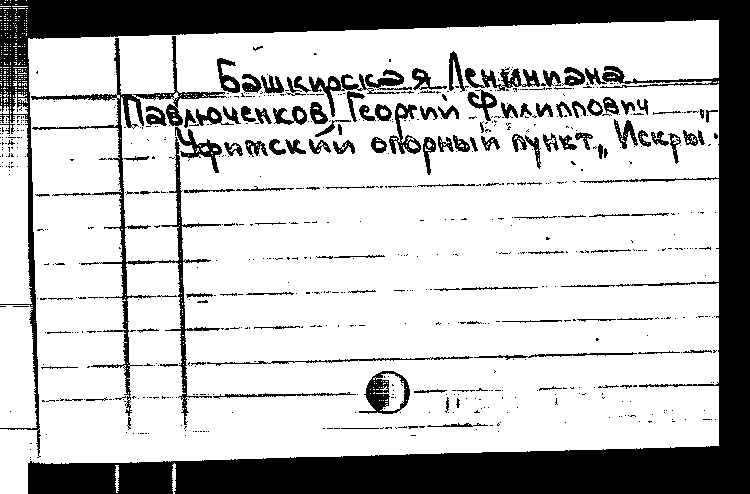 Башкирская Лениниана.
Павлюченков, Георгий Филиппович
Уфимский опорный пункт „Искры".